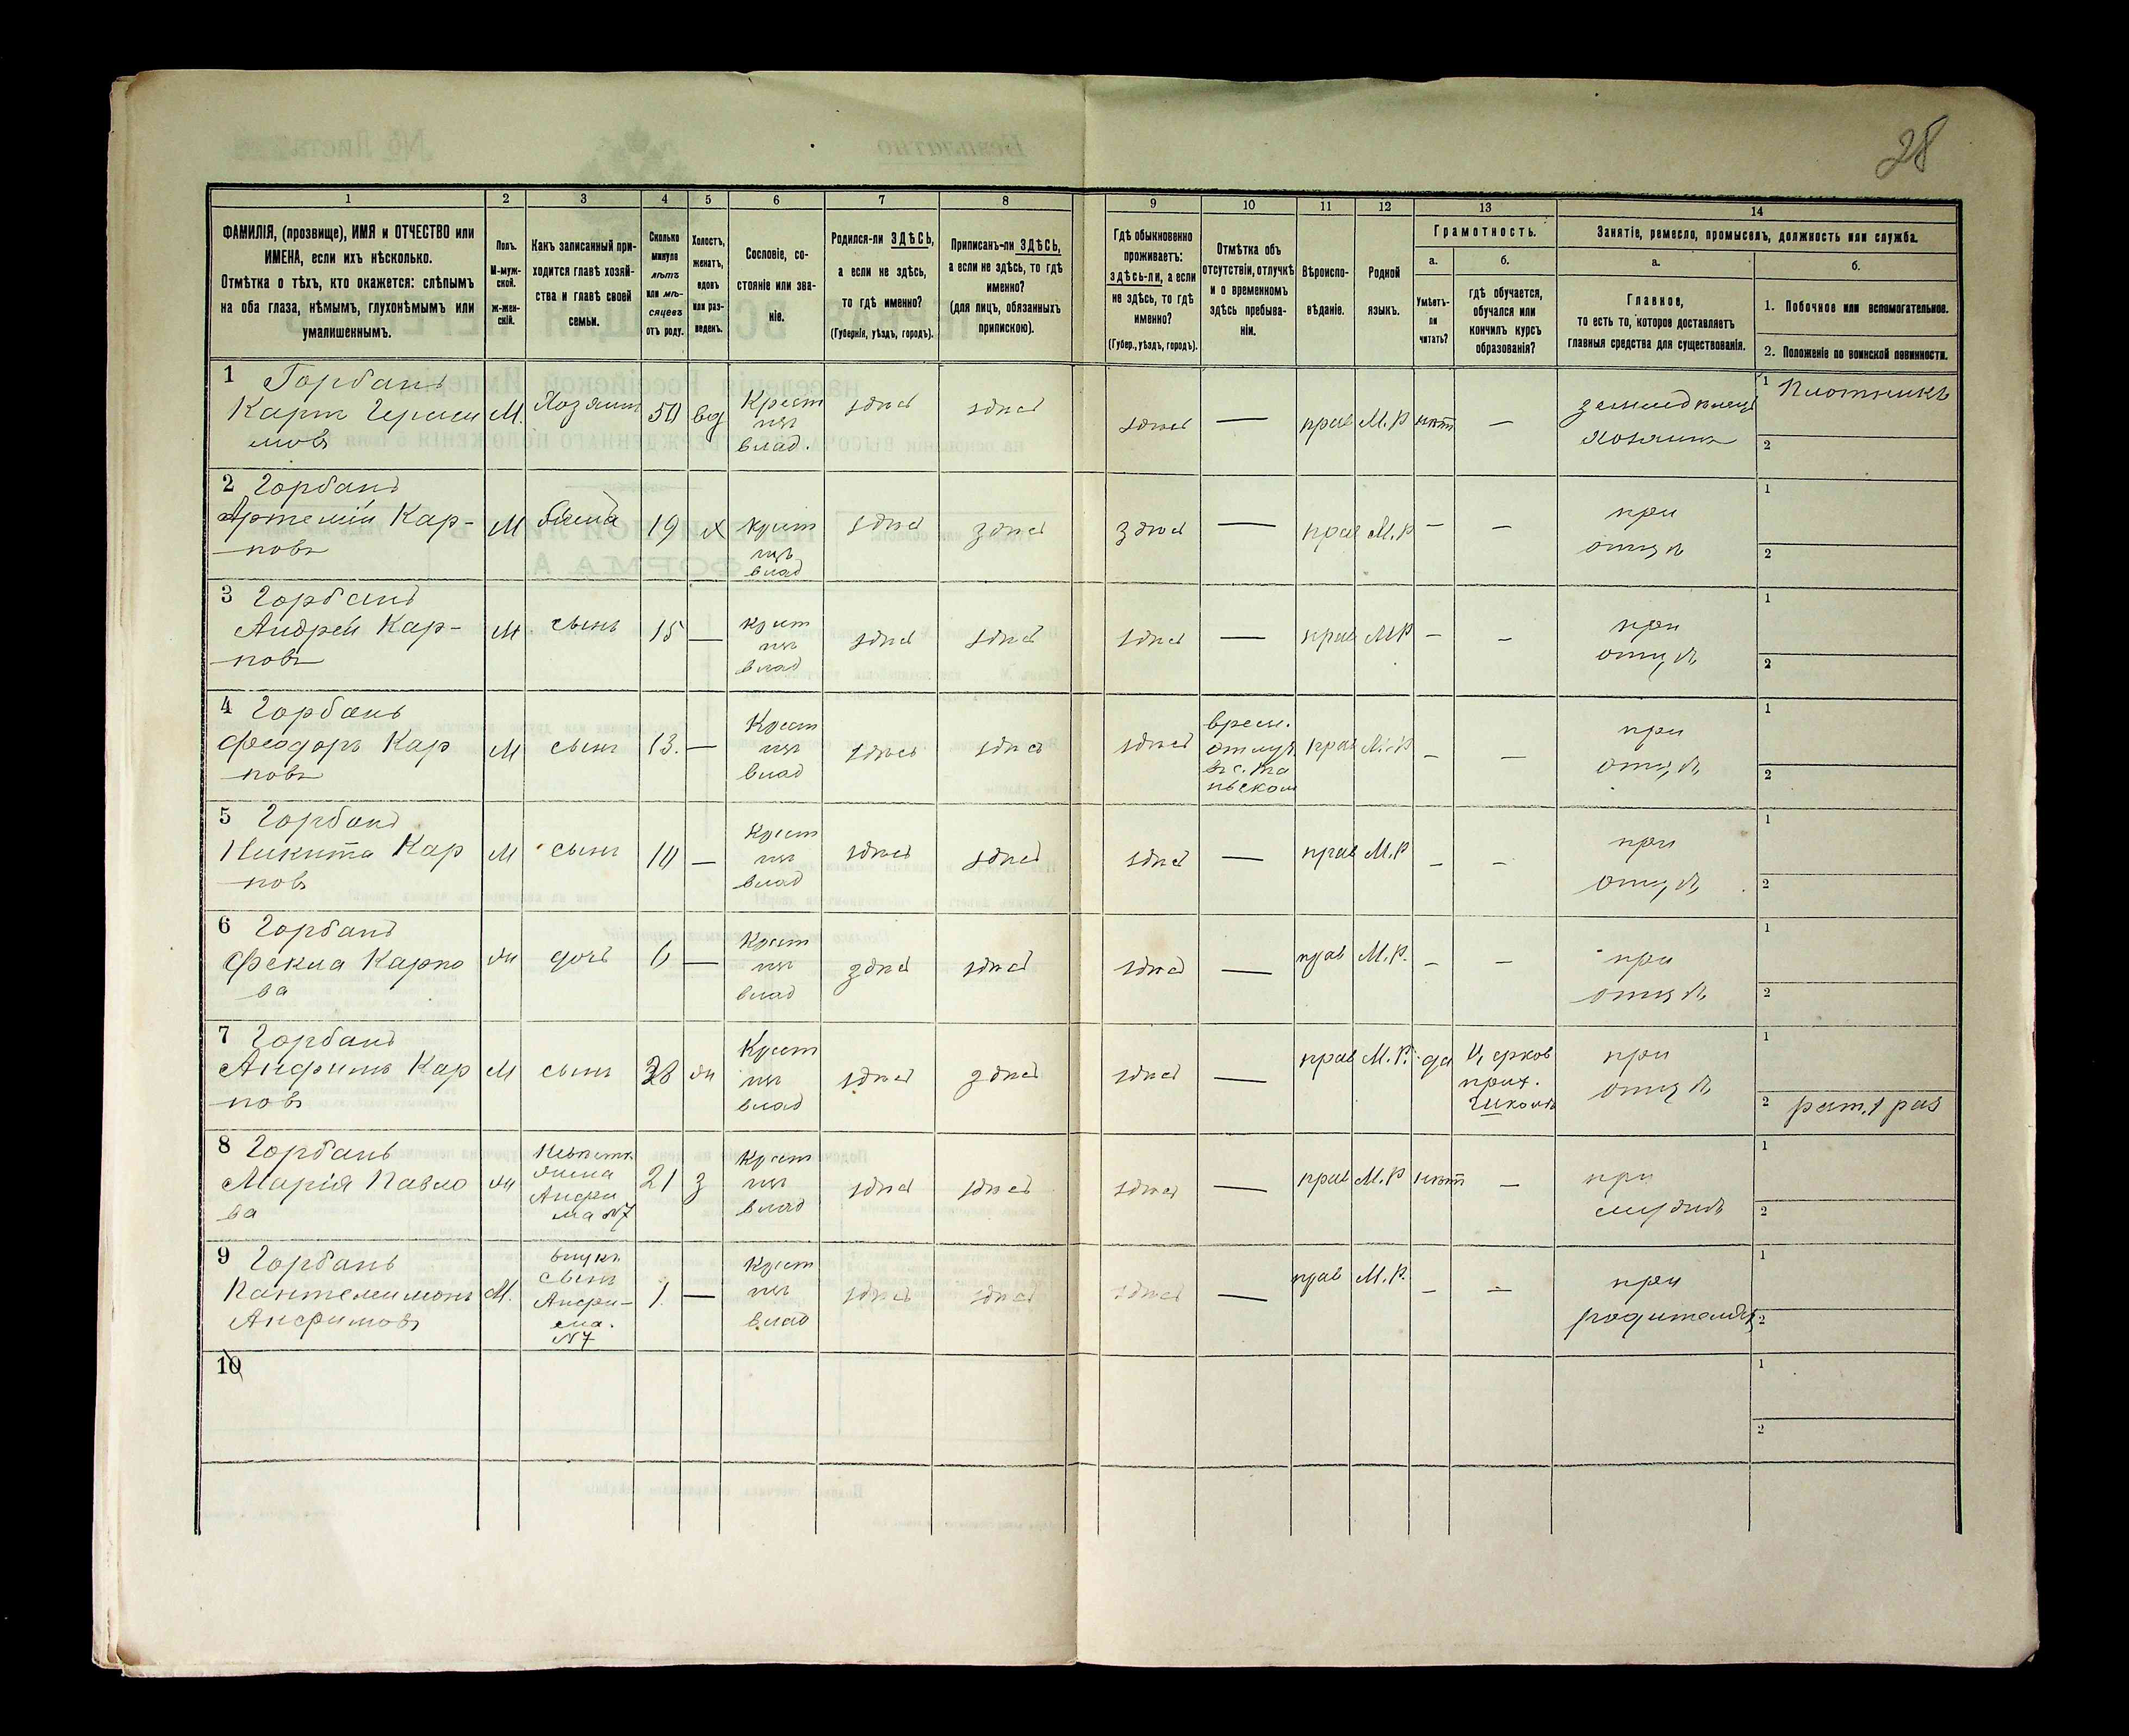 28
1
2
3
4
5
6
7
8
9
10
11
12
13
14
ФАМИЛІЯ, (прозвище), ИМЯ и ОТЧЕСТВО или
ИМЕНА, если ихъ нѣсколько.
Отмѣтка о тѣхъ, кто окажется: слѣпымъ
на оба глаза, нѣмымъ, глухонѣмымъ или
умалишеннымъ.
Полъ.
М-муж-
ской.
ж-жен-
скій.
Какъ записанный при-
ходится главѣ хозяй-
ства и главѣ своей
семьи.
Сколько
минуло
лѣтъ
или мѣ-
сяцевъ
отъ роду.
Холостъ,
женатъ,
вдовъ
или раз-
веденъ.
Сословіе, со-
стояніе или зва-
ніе.
Родился-ли ЗДѢСЬ,
а если не здѣсь,
то гдѣ именно?
(Губернія, уѣздъ, городъ).
Приписанъ-ли ЗДѢСЬ,
а если не здѣсь, то гдѣ
именно?
(для лицъ, обязанныхъ
припискою).
Гдѣ обыкновенно
проживаетъ:
здѣсь-ли, а если
не здѣсь, то гдѣ
именно?
(Губер., уѣздъ, городъ).
Отмѣтка объ
отсутствіи, отлучкѣ
и о временномъ
здѣсь пребыва-
ніи.
Вѣроиспо-
вѣданіе.
Родной
языкъ.
Грамотность.
а.
Умѣетъ-
ли
читать?
б.
гдѣ обучается,
обучался или
кончилъ курсъ
образованія?
Занятіе, ремесло, промыселъ, должность или служба.
а.
Главное,
то есть то, которое доставляетъ
главныя средства для существованія.
б.
1. Побочное или вспомогательное.
2. Положеніе по воинской повинности.
1 Горбань
Карпъ Гераси
мовъ
М.
Хозяинъ
50
вд
Крест
изъ
влад.
здѣсь
здѣсь
здѣсь
—
прав
М.Р
нѣтъ
—
земледѣлецъ
хозяинъ
1 Плотникъ
2
2 Горбань
Артемій Кар-
повъ
М
сынъ
19
х
крест
изъ
влад
здѣсь
здѣсь
здѣсь
—
прав
М.Р
—
—
при
отцѣ
1
2
3 Горбань
Андрей Кар-
повъ
М
сынъ
15
—
крест
изъ
влад
здѣсь
здѣсь
здѣсь
—
прав
МР
—
—
при
отцѣ
1
2
4 Горбань
Феодоръ Кар
повъ
М
сынъ
13.
—
Крест
изъ
влад
здѣсь
здѣсь
здѣсь
врем.
отлуч
въ с.
прав
М.Р
—
—
при
отцѣ
1
2
5 Горбань
Никита Кар
повъ
М
сынъ
10
—
Крест
изъ
влад
здѣсь
здѣсь
здѣсь
—
прав
М.Р
—
—
при
отцѣ
1
2
6 Горбань
Фекла Карпо
ва
ж
дочь
6
—
Крест
изъ
влад
здѣсь
здѣсь
здѣсь
—
прав
М.Р.
—
—
при
отцѣ
1
2
7 Горбань
Анфимъ Кар
повъ
М
сынъ
28
ж
Крест
изъ
влад
здѣсь
здѣсь
здѣсь
—
прав
М.Р.
да
Церков
прих.
школѣ
при
отцѣ
1
2 рат. 1 раз
8 Горбань
Марія Павло
ва
ж
Невѣстк.
жена
Анфи
ма №7
21
з
Крест
изъ
влад
здѣсь
здѣсь
здѣсь
—
прав
М.Р
нѣтъ
—
при
мужѣ
1
2
9 Горбань
Пантелимонъ
Анфимовъ
М.
внукъ
сынъ
Анфи-
ма.
№7
1.
—
Крест
изъ
влад
здѣсь
здѣсь
здѣсь
—
прав
М.Р.
—
—
при
родителяхъ
1
2
10
1
2